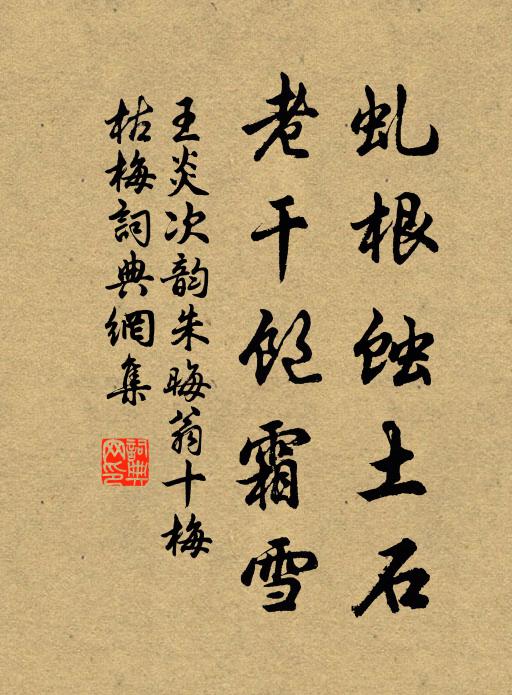 虬根蝕土石
老干飽霜雪
王炎次韵朱晦翁十梅
枯梅詞典網集
詞典
网印